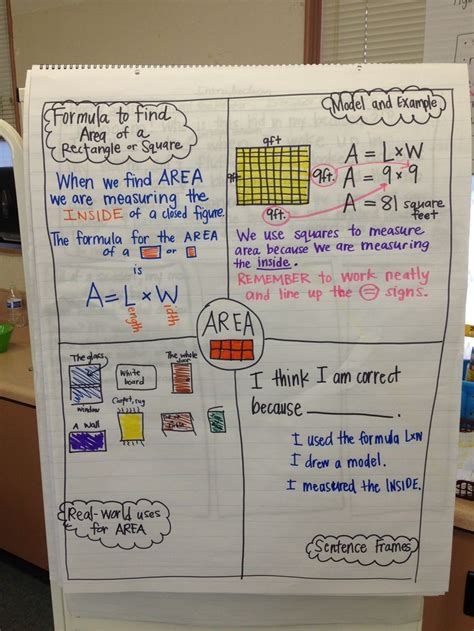 Formula to find
Area of a
Rectangle or Square
When we find AREA
we are measuring the
INSIDE of a closed figure.
The formula for the AREA
of a or
is
A=LxW
ength
idth
Model and Example
9ft.
9ft.
9ft.
9ft.
A = L x W
A = 9 x 9
A = 81 square
feet
We use squares to measure
area because we are measuring
the inside.
REMEMBER to work neatly
and line up the = signs.
AREA
The glass
window
White
board
The whole
door
A wall
Carpet, rug
Real-world uses
for AREA
I think I am correct
because
I used the formula LxW
I drew a model.
I measured the INSIDE.
Sentence Frames